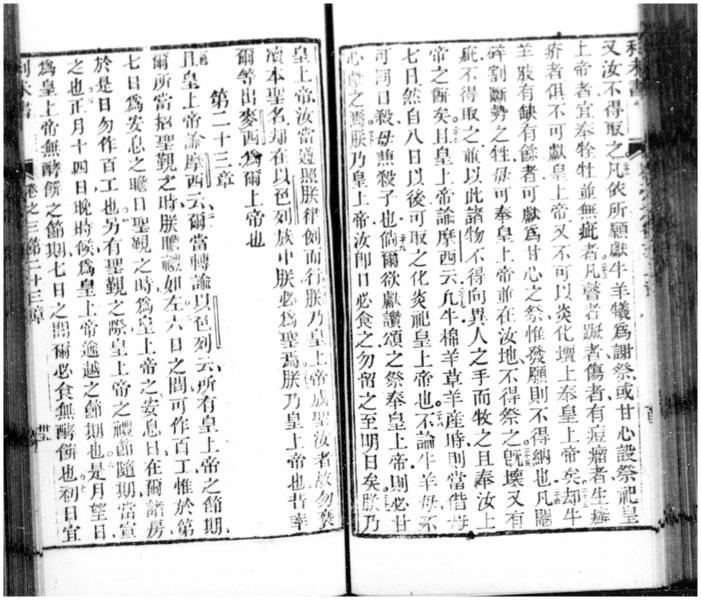 又汝不得取之凡依所願獻牛羊犧爲謝祭或甘心設祭祀皇
上帝者宜奉牷牡並無疵者凡瞽者跛者傷者有痘瘤者生癬
疥者俱不可獻皇上帝又不可以炎化壇上奉皇上帝矣却牛
羊肢有缺有餘者可獻爲甘心之祭惟發願則不得納也凡
碎割斷勢之牲毋可奉皇上帝並在汝地不得祭之旣壞又有
疵不得取之並以此諸物不得向異人之手而收之且奉汝上
帝之餅矣且皇上帝諭摩西云凡牛棉羊草羊產時則當偕母
七日然自八日以後可取之化炎祀皇上帝也不論牛羊母不
可同日殺母兼殺子也倘爾欲獻讚頌之祭奉皇上帝則必甘
心獻之焉朕乃皇上帝汝即日必食之勿留之至明日矣朕乃
皇上帝汝當遵照朕律例而行朕乃皇上帝成聖汝者故勿褻
瀆本聖名却在以色列族中朕必爲聖焉朕乃皇上帝也昔率
爾等出麥西爲爾上帝也
第二十三章
且皇上帝諭摩西云爾當轉諭以色列云所有皇上帝之節期
爾所當招聖覲之時朕瞻禮如左六日之間可作百工惟於第
七日爲安息之瞻日聖覲之時爲皇上帝之安息日在爾諸房
於是日勿作百工也另有聖覲之際皇上帝之禮節隨期當宣
之也正月十四日晚時候爲皇上帝逾越之節期也是月望日
爲皇上帝無酵餅之節期七日之間爾必食無酵餅也初日宜
利未書 卷之三第二十三章